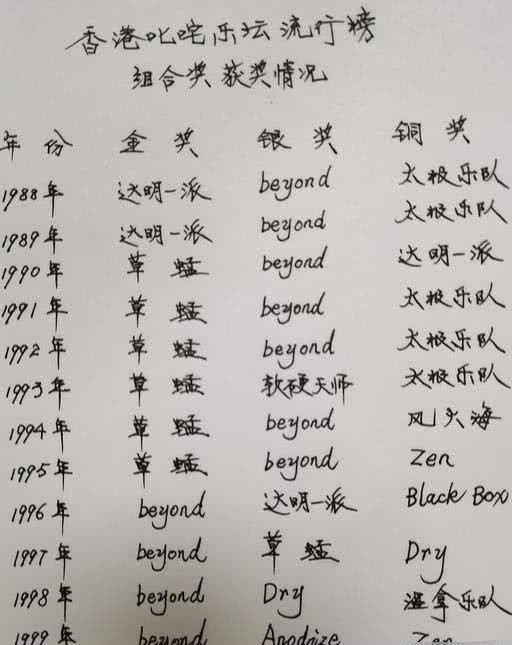 香港叱咤乐坛流行榜
组合奖 获奖情况
年份 金奖 银奖 铜奖
1988年 达明一派 beyond 太极乐队
1989年 达明一派 beyond 太极乐队
1990年 草蜢 beyond 达明一派
1991年 草蜢 beyond 太极乐队
1992年 草蜢 beyond 太极乐队
1993年 草蜢 软硬天师 太极乐队
1994年 草蜢 beyond 风火海
1995年 草蜢 beyond Zen
1996年 beyond 达明一派 Black Box
1997年 beyond 草蜢 Dry
1998年 beyond Dry 温拿乐队
1999年 beyond Anodize Zen